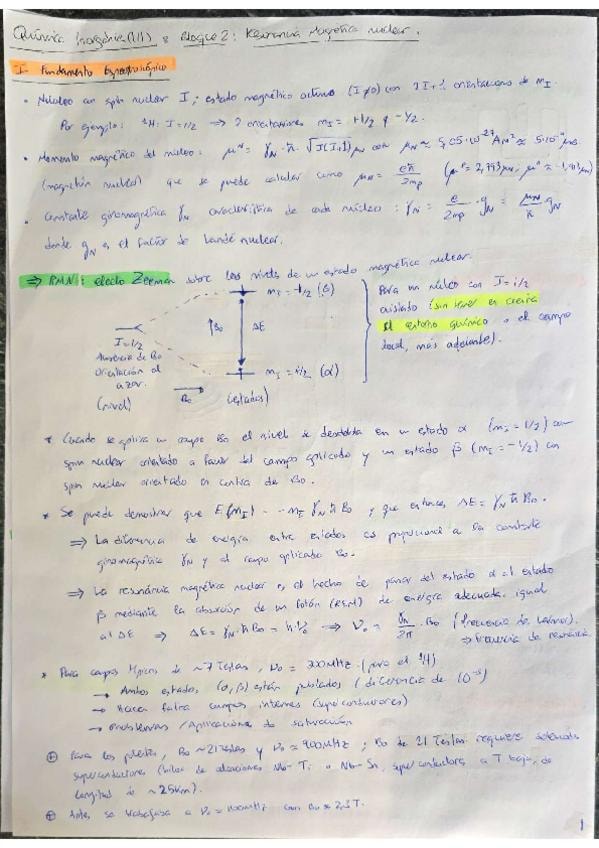 Química Inorgánica (III) : Bloque 2: Resonancia Magnética Nuclear.
I- Fundamento Espectroscópico
• Núcleo con spin nuclear I; estado magnético activo (I≠0) con 2I+1 orientaciones de mI.
Por ejemplo: ¹H: I=1/2 => 2 orientaciones mI = +1/2 y -1/2.
• Momento magnético del núcleo: μᴺ = γN · ħ · √I(I+1) μN con μN ≈ 5,05·10⁻²⁷ Am²
(magnetón nuclear) que se puede calcular como μN = eħ/2mp (μᵖ = 2,793μN;
• Constante giromagnética γN característica de cada núcleo: γN = e/2mp · gN = μN/ħ gN
donde gN es el factor de Landé nuclear.
=> RMN: efecto Zeeman sobre los niveles de un estado magnético nuclear.
mI = -1/2 (β)
↑B₀ ΔE
I=1/2
Ausencia de B₀
Orientación al
azar.
(nivel)
B₀
mI = 1/2 (α)
(estados)
Para un núcleo con I=1/2
aislado (sin tener en cuenta
el entorno químico o el campo
local, más adelante).
* Cuando se aplica un campo B₀ el nivel se desdobla en un estado α (mI = 1/2) con
spin nuclear orientado a favor del campo aplicado y un estado β (mI = -1/2) con
spin nuclear orientado en contra de B₀.
* Se puede demostrar que E(mI) = -mI γN ħ B₀ y que entonces ΔE = γN ħ B₀.
=> La diferencia de energía entre estados es proporcional a la constante
giromagnética γN y al campo aplicado B₀.
=> La resonancia magnética nuclear es el hecho de pasar del estado α al estado
β mediante la absorción de un fotón (REM) de energía adecuada, igual
al ΔE => ΔE = γN ħ B₀ = h·ν₀ => ν₀ = γN/2π · B₀ (frecuencia de Larmor).
=> frecuencia de resonancia.
* Para campos típicos de ~7 Teslas, ν₀ = 300MHz (para el ¹H)
→ Ambos estados (α, β) están poblados (diferencia de 10⁻⁵)
→ Hacen falta campos intensos (superconductores)
→ Problemas / Aplicaciones de saturación
⊕ Para B₀ ~21 Teslas y ν₀ ≈ 900MHz; B₀ de 21 Teslas requiere
superconductores (hilos de aleaciones Nb-Ti o Nb-Sn, superconductores a T baja, de
longitud de ~25km).
⊕ Antes se trabajaba a ν₀ = 100MHz con B₀ ≈ 2,3T.
1